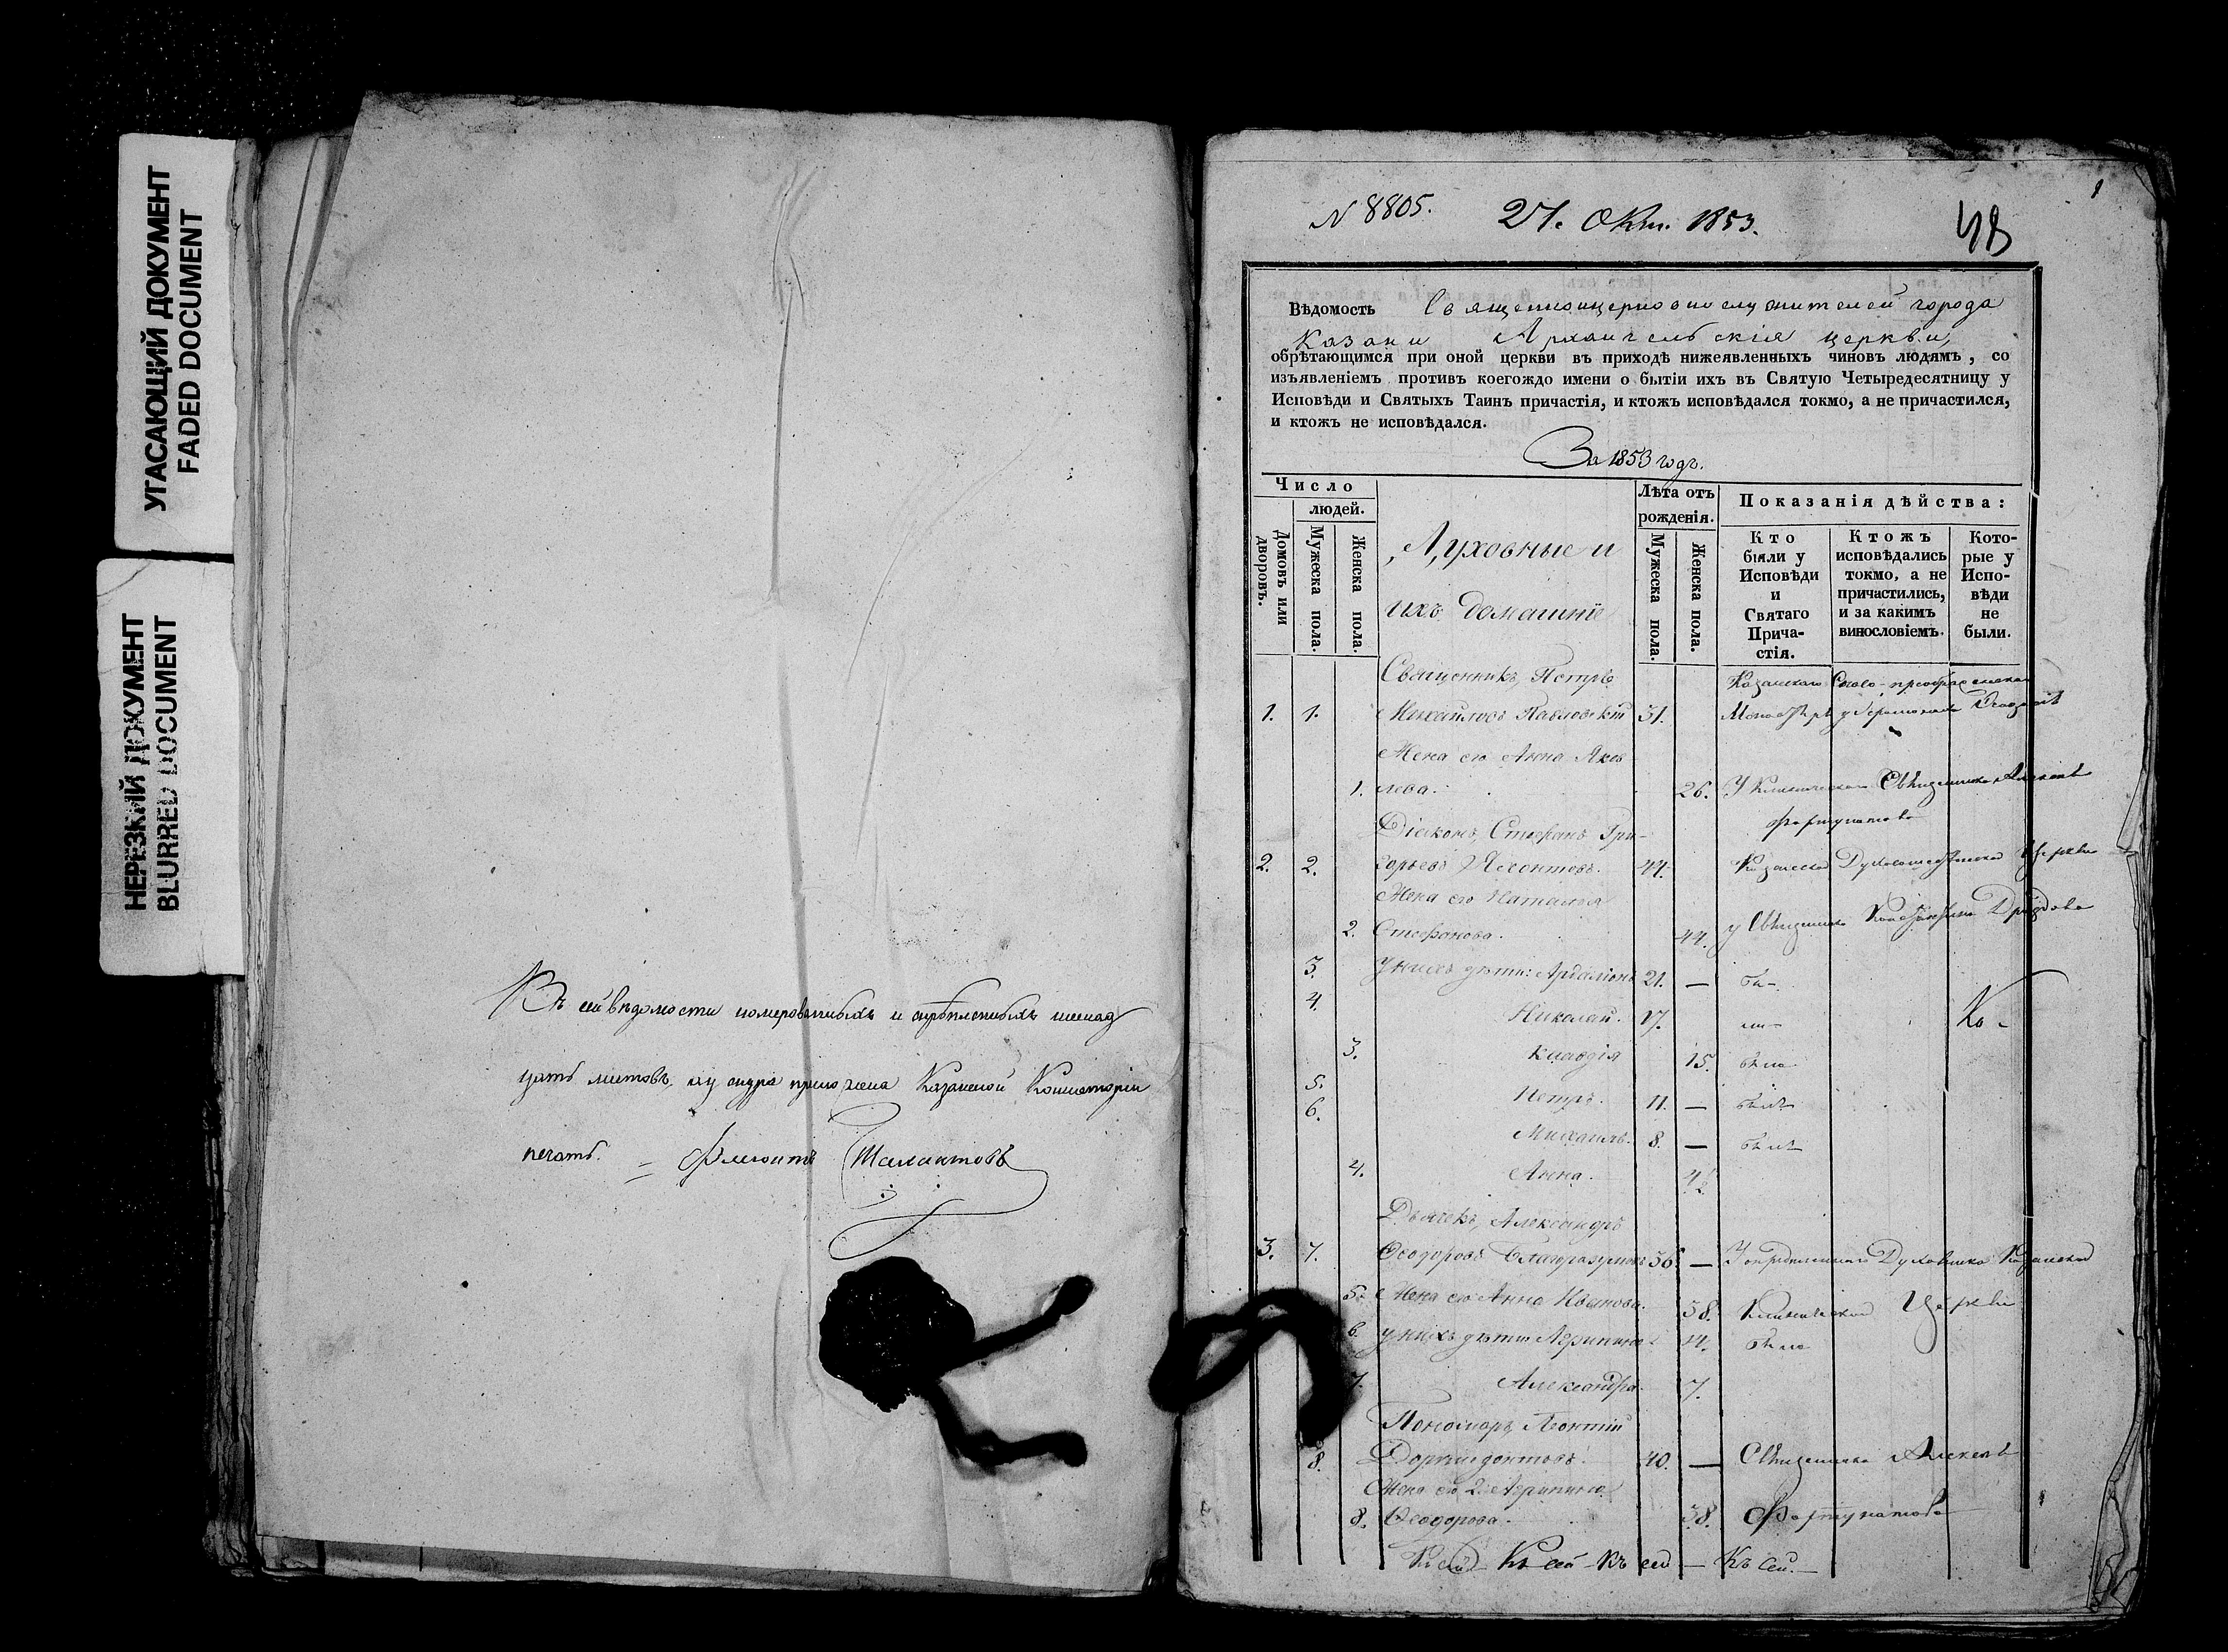 УГАСАЮЩИЙ ДОКУМЕНТ
FADED DOCUMENT
НЕРЕЗКИЙ ДОКУМЕНТ
BLURRED DOCUMENT
Въ сей вѣдомости номерованныхъ и скрѣпленныхъ
цать листовъ, къ снуру приложена Казанской Консисторіи
печать.
N 8805. 27. Окт. 1853.
Вѣдомость Священноцерковнослужителей города
Казани Архангельскія церкви,
обрѣтающимся при оной церкви въ приходѣ нижеявленныхъ чиновъ людямъ, со
изъявленіемъ противъ коегождо имени о бытіи ихъ въ Святую Четыредесятницу у
Исповѣди и Святыхъ Таинъ причастія, и ктожъ исповѣдался токмо, а не причастился,
и ктожъ не исповѣдался.
За 1853 годъ.
Число
людей.
Домовъ или дворовъ.
Мужеска пола.
Женска пола.
Духовные и
ихъ домашніе
Лѣта отъ
рожденія.
Мужеска пола.
Женска пола.
Показанія дѣйства:
Кто
были у
Исповѣди
и
Святаго
Прича-
стія.
Ктожъ
исповѣдались
токмо, а не
причастились,
и за какимъ
винословіемъ.
Кото-
рые у
Испо-
вѣди
не
были.
Священникъ, Петръ Казанскаго Спасо-преображенскаго
1. 1. Михайловъ Павловскій 31.
Жена его Анна Яков
1. лева. 26. У Священника Алексѣя
Діаконъ, Стефанъ Гри- Фортунатова
2. 2. горьевъ Яхонтовъ. 44. Казанской Духосошественской Церкви
Жена его Наталья
2. Стефанова. 44. у Священника Константина
3. У нихъ дѣти: Ардаліонъ 21. —
4. Николай. 17.
3. Клавдія 15. была
5. Петръ. 11. — былъ
6. Михаилъ. 8. — былъ
4. Анна.
Дьячекъ, Александръ
3. 7. Ѳеодоровъ Благоразумовъ 36 — У Духовника Казанской
5. Жена его Анна Иванова. 38. Церкви
6. у нихъ дѣти: Агрипина 14. была
7. Александра. 7.
Пономарь, Леонтій
8. Дормидонтовъ. 40. — Священника Алексѣя
Жена его 2. Агрипина
8. Ѳеодорова. 38. Фортунатова
Къ сей — Къ сей — Къ сей — Къ сей. —